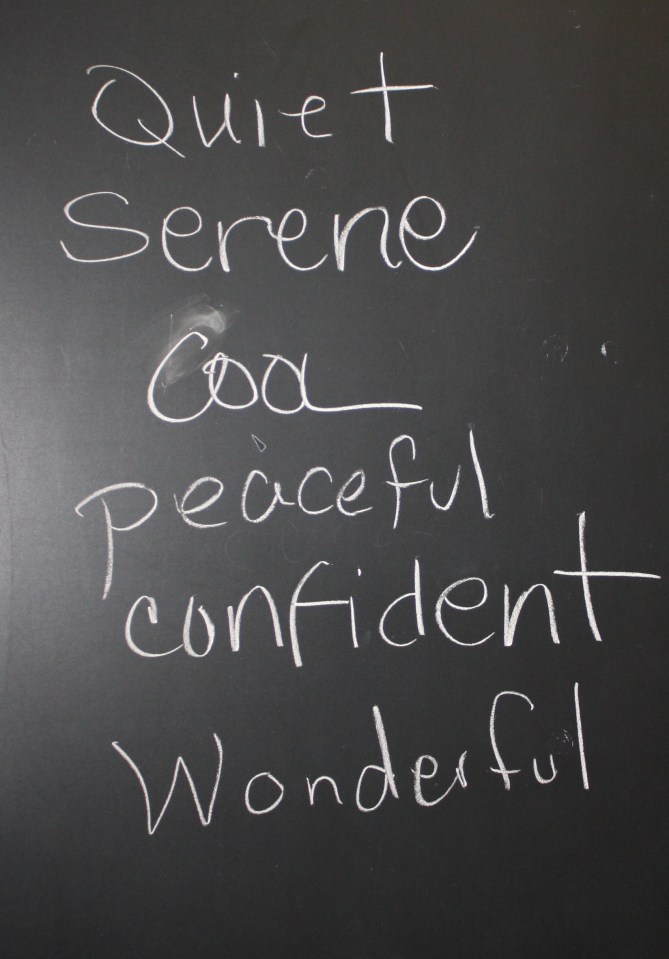 Quiet
Serene
Cool
peaceful
confident
Wonderful